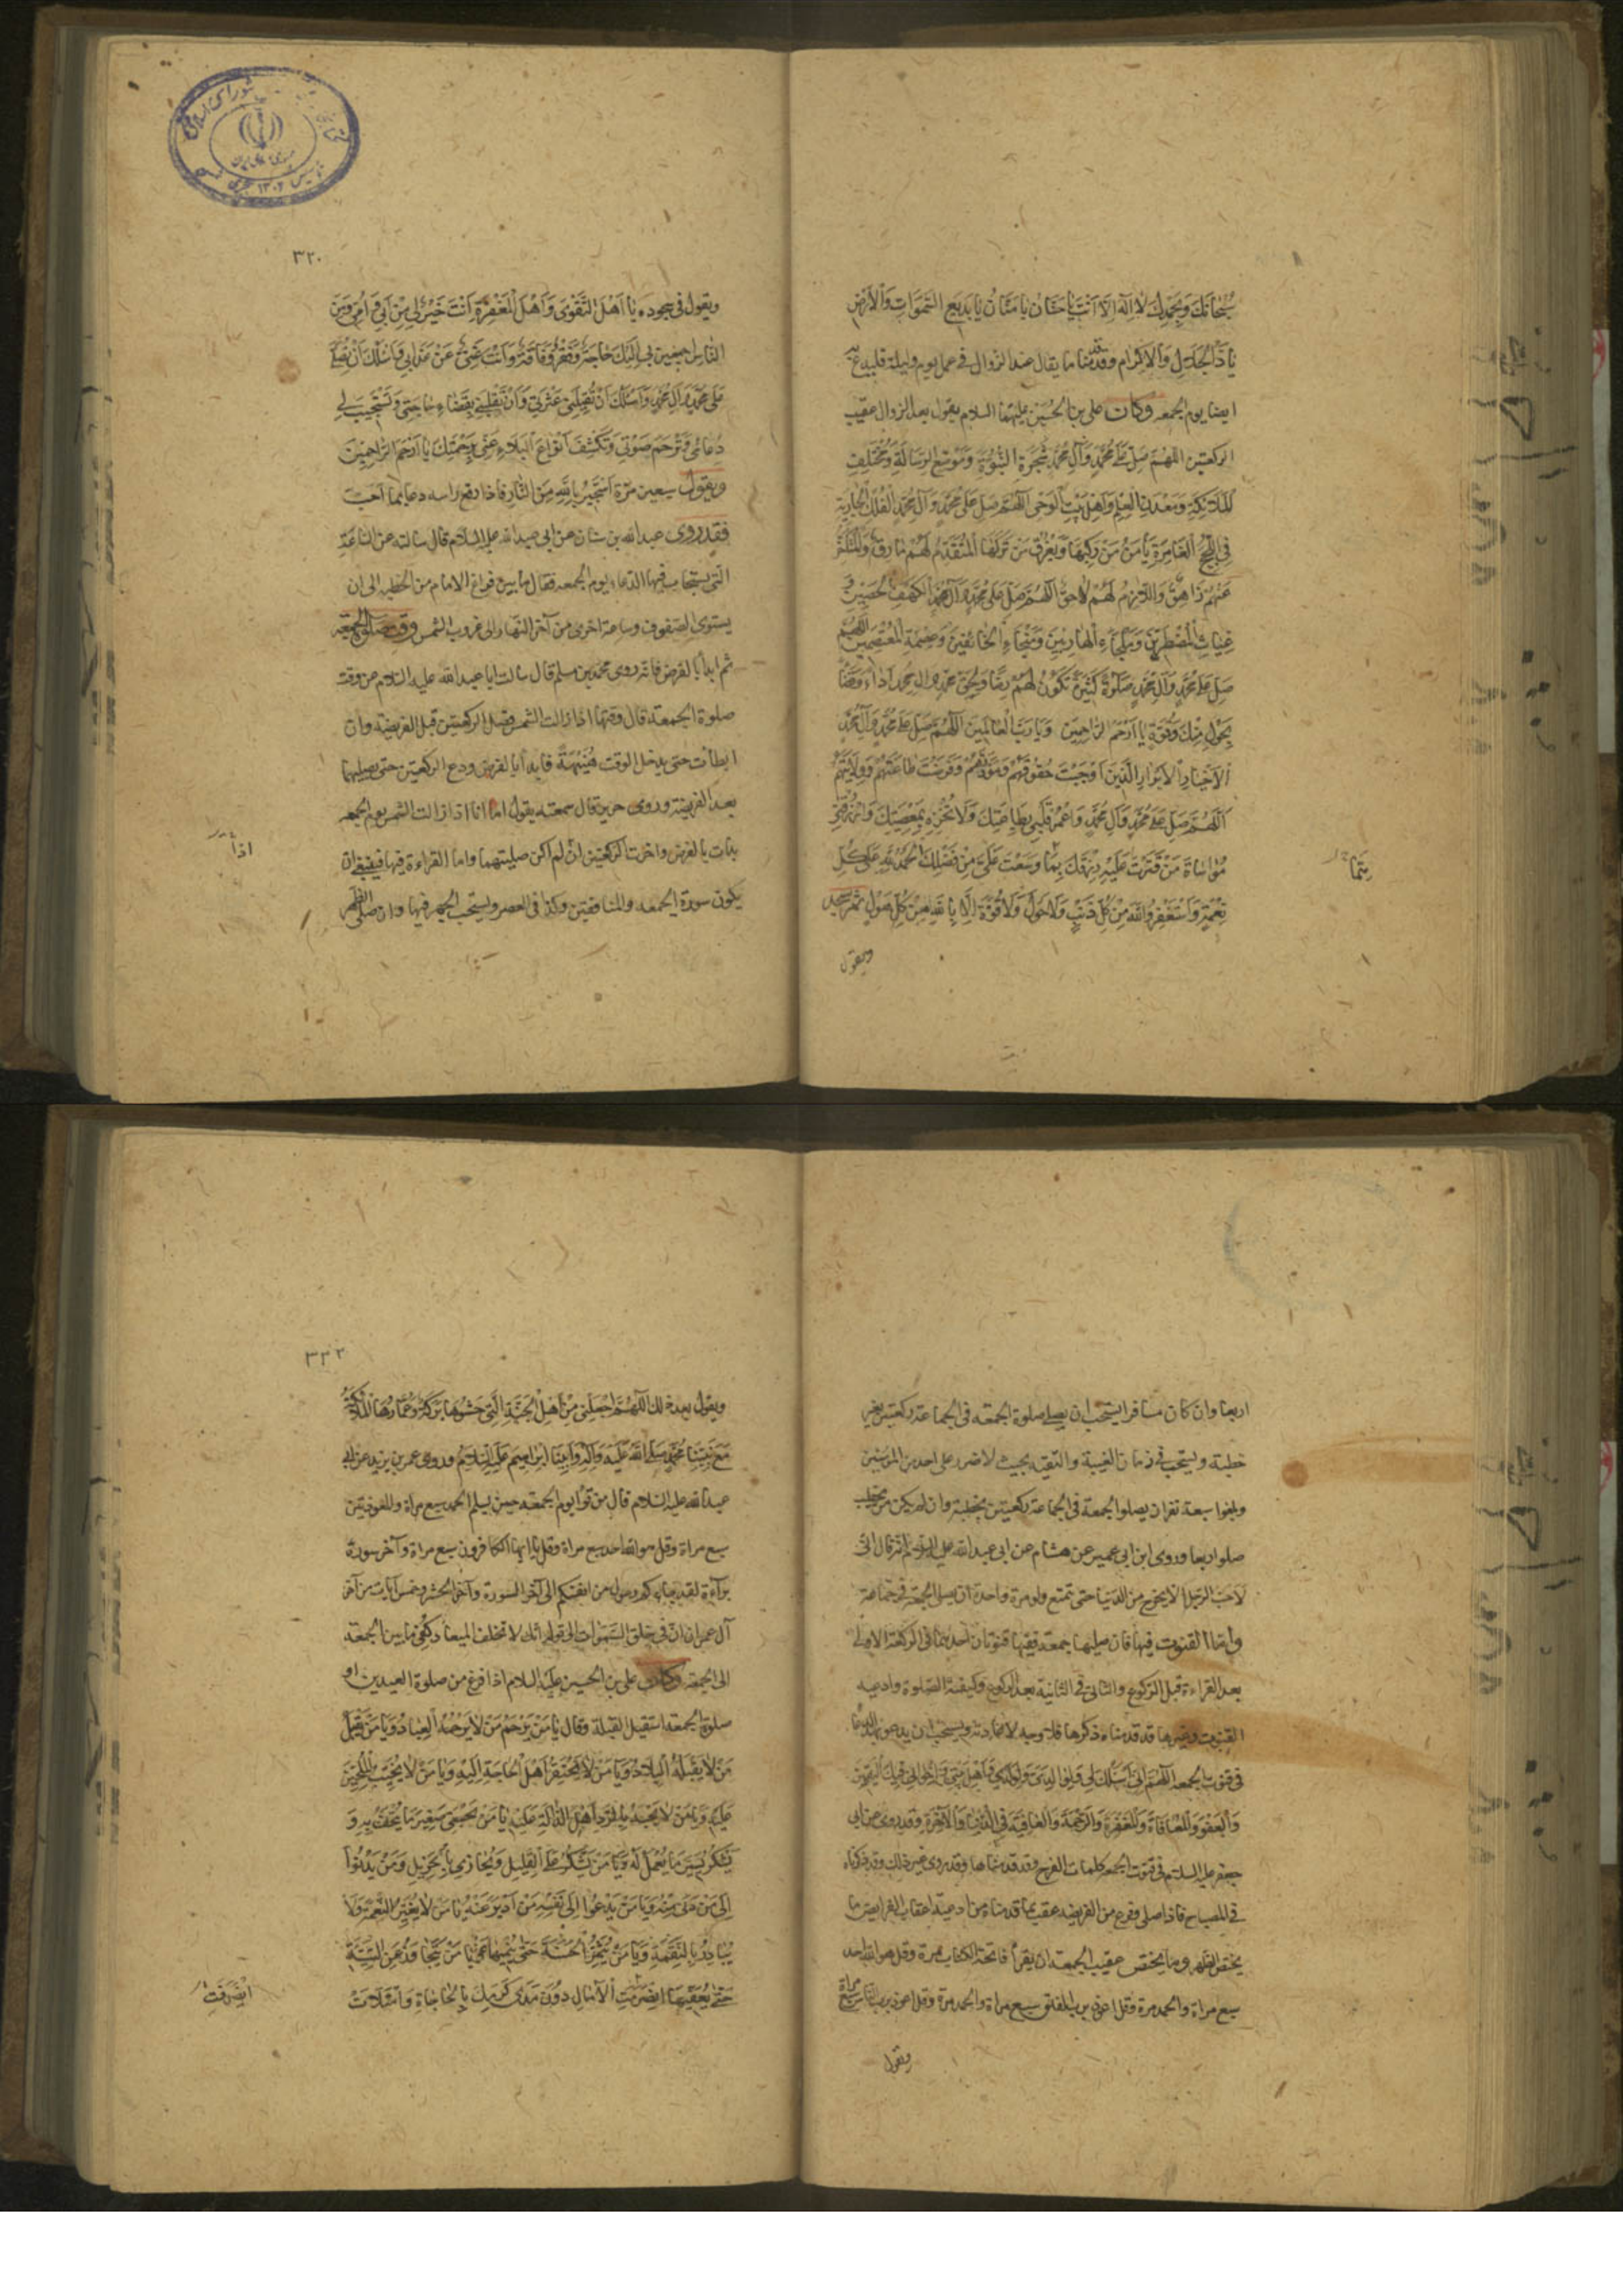 سُبْحَانَكَ وَبِحَمْدِكَ لَا اِلٰهَ اِلَّا اَنْتَ يَا حَنَّانُ يَا مَنَّانُ يَا بَدِيعَ السَّمٰوَاتِ وَالْاَرْضِ
يَا ذَا الْجَلَالِ وَالْاِكْرَامِ وقدّمنا ما يقال عند الزوال فى عمل يوم وليلة فليدع به
ايضا يوم الجمعه وكان على بن الحسين عليهما السلام يقول بعد الزوال عقيب
الركعتين اللهم صَلِّ عَلٰى مُحَمَّدٍ وَآلِ مُحَمَّدٍ شَجَرَةِ النُّبُوَّةِ وَمَوْضِعِ الرِّسَالَةِ وَمُخْتَلَفِ
الْمَلَائِكَةِ وَمَعْدِنِ الْعِلْمِ وَاَهْلِ بَيْتِ الْوَحْىِ اَللّٰهُمَّ صَلِّ عَلٰى مُحَمَّدٍ وَآلِ مُحَمَّدٍ الْفُلْكِ الْجَارِيَةِ
فِى اللُّجَجِ الْغَامِرَةِ يَأْمَنُ مَنْ رَكِبَهَا وَيَغْرَقُ مَنْ تَرَكَهَا الْمُتَقَدِّمُ لَهُمْ مَارِقٌ وَالْمُتَاَخِّرُ
عَنْهُمْ زَاهِقٌ وَاللَّازِمُ لَهُمْ لَاحِقٌ اَللّٰهُمَّ صَلِّ عَلٰى مُحَمَّدٍ وَآلِ مُحَمَّدٍ الْكَهْفِ الْحَصِينِ وَ
غِيَاثِ الْمُضْطَرِّينَ وَمَلْجَاءِ الْهَارِبِينَ وَمَنْجَاءِ الْخَائِفِينَ وَعِصْمَةِ الْمُعْتَصِمِينَ اَللّٰهُمَّ
صَلِّ عَلٰى مُحَمَّدٍ وَآلِ مُحَمَّدٍ صَلٰوةً كَثِيرَةً تَكُونُ لَهُمْ رِضًا وَلِحَقِّ مُحَمَّدٍ وَآلِ مُحَمَّدٍ اَدَاءً وَقَضَاءً
بِحَوْلٍ مِنْكَ وَقُوَّةٍ يَا اَرْحَمَ الرَّاحِمِينَ وَيَا رَبَّ الْعَالَمِينَ اَللّٰهُمَّ صَلِّ عَلٰى مُحَمَّدٍ وَآلِ مُحَمَّدٍ
الْاَخْيَارِ الْاَبْرَارِ الَّذِينَ اَوْجَبْتَ حُقُوقَهُمْ وَمَوَدَّتَهُمْ وَفَرَضْتَ طَاعَتَهُمْ وَوِلَايَتَهُمْ
اَللّٰهُمَّ صَلِّ عَلٰى مُحَمَّدٍ وَآلِ مُحَمَّدٍ وَاعْمُرْ قَلْبِى بِطَاعَتِكَ وَلَا تُخْزِهِ بِمَعْصِيَتِكَ وَارْزُقْنِى
مُوَاسَاةَ مَنْ قَتَّرْتَ عَلَيْهِ رِزْقَكَ بِمَا وَسَّعْتَ عَلَىَّ مِنْ فَضْلِكَ الْحَمْدُ لِلّٰهِ عَلٰى كُلِّ
نِعْمَةٍ وَاَسْتَغْفِرُ اللّٰهَ مِنْ كُلِّ ذَنْبٍ وَلَا حَوْلَ وَلَا قُوَّةَ اِلَّا بِاللّٰهِ مِنْ كُلِّ هَوْلٍ ثم يسجد
ويقول
٣٢٠
ويقول فى سجوده يَا اَهْلَ التَّقْوٰى وَاَهْلَ الْمَغْفِرَةِ اَنْتَ خَيْرٌ لِى مِنْ اَبِى وَاُمِّى وَمِنَ
النَّاسِ اَجْمَعِينَ بِى اِلَيْكَ حَاجَةٌ وَفَقْرٌ وَفَاقَةٌ وَاَنْتَ غَنِىٌّ عَنْ عَذَابِى فَاَسْئَلُكَ اَنْ تُصَلِّىَ
عَلٰى مُحَمَّدٍ وَآلِ مُحَمَّدٍ وَاَسْئَلُكَ اَنْ تُقِيلَنِى عَثْرَتِى وَاَنْ تَقْلِبَنِى بِقَضَاءِ حَاجَتِى وَتَسْتَجِيبَ لِى
دُعَائِى وَتَرْحَمَ صَوْتِى وَتَكْشِفَ اَنْوَاعَ الْبَلَاءِ عَنِّى بِرَحْمَتِكَ يَا اَرْحَمَ الرَّاحِمِينَ
ويقول سبعين مرّة اَسْتَجِيرُ بِاللّٰهِ مِنَ النَّارِ فاذا رفع راسه دعا بما احب
فقد روى عبد الله بن سنان عن ابى عبد الله عليه السلام قال سالته عن الساعة
التى يستجاب فيها الدعاء يوم الجمعه فقال ما بين فراغ الامام من الخطبه الى ان
يستوى الصفوف وساعة اخرى من آخر النهار الى غروب الشمس وقت صلوة الجمعة
ثم ابدأ بالفرض فانّه روى محمد بن مسلم قال سالت ابا عبد الله عليه السلام عن وقت
صلوة الجمعة قال وقتها اذا زالت الشمس فصل الركعتين قبل الفريضة وان
ابطأت حتى يدخل الوقت هُنَيْهَةً فابدأ بالفرض ودع الركعتين حتى تصليهما
بعد الفريضة وروى حريز قال سمعته يقول اما انا اذا زالت الشمس يوم الجمعه
بدات بالفرض واخرت الركعتين اذا لم اكن صليتهما واما القراءة فيها فينبغى ان
يكون سورة الجمعه والمنافقين وكذا فى العصر ويستحب الجهر فيها وان صلى الظهر
اذا
اربعا وان كان مسافرا يستحب ان يصلى صلوة الجمعة فى الجماعة ركعتين بغير
خطبة ويستحب فى زمان الغيبة والتقية بحيث لا ضرر على احد من المؤمنين
وبلغوا سبعة نفر ان يصلوا الجمعة فى الجماعة ركعتين بخطبة وان لم يكن من يخطب
صلوا اربعا وروى ابن ابى عمير عن هشام عن ابى عبد الله عليه السلام انّه قال انّى
لاحبّ الرجل الا يخرج من الدنيا حتى يتمتع ولو مرة واحدة وان يصلى الجمعة فى جماعة
وامّا القنوت فيها فان صليها جمعة ففيها قنوتان احديهما فى الركعة الاولى
بعد القراءة قبل الركوع والثانى فى الثانية بعد الركوع وكيفية الصلوة وادعيه
القنوت وغيرها قد قدمناه ذكرها فلا وجه لاعادته ويستحب ان يدعو بهذا الدعا
فى قنوت الجمعه اَللّٰهُمَّ اِنِّى اَسْئَلُكَ لِى وَلِوَالِدَىَّ وَلِوُلْدِى وَاَهْلِ بَيْتِى وَاِخْوَانِى فِيكَ الْيَقِينَ
وَالْعَفْوَ وَالْمُعَافَاةَ وَالْمَغْفِرَةَ وَالرَّحْمَةَ وَالْعَافِيَةَ فِى الدُّنْيَا وَالْآخِرَةِ وقد روى عن ابى
جعفر عليه السلم فى قنوت الجمعه كلمات الفرج وقد قدمناها وقد روى غير ذلك وقد ذكرناه
فى المصباح فاذا صلى وفرغ من الفريضة عقب بما قدمناه من ادعية اعقاب الفرايض ما
يختص الظهر وما يختص عقيب الجمعة ان يقرأ فاتحة الكتاب مرة وقل هو الله احد
سبع مراة والحمد مرة وقل اعوذ برب الفلق سبع مراة والحمد مرة وقل اعوذ برب الناس سبع مراة
ويقول
٣٣٢
ويقول بعد ذلك اَللّٰهُمَّ اجْعَلْنِى مِنْ اَهْلِ الْجَنَّةِ الَّتِى حَشْوُهَا بَرَكَةٌ وَعُمَّارُهَا الْمَلَائِكَةُ
مَعَ نَبِيِّنَا مُحَمَّدٍ صَلَّى اللّٰهُ عَلَيْهِ وَآلِهِ وَاَبِينَا اِبْرَاهِيمَ عَلَيْهِ السَّلَامُ وروى عمر بن يزيد عن ابى
عبد الله عليه السلام قال من قرا يوم الجمعة حين يسلم الحمد سبع مراة والمعوذتين
سبع مراة وقل هو الله احد سبع مراة وقل يا ايها الكافرون سبع مراة وآخر سورة
برآءة لقد جاءكم رسول من انفسكم الى آخر السورة وآخر الحشر وخمس آيات من آخر
آل عمران ان فى خلق السَّمٰوَاتِ الى قوله انك لا تخلف الميعاد كُفِىَ ما بين الجمعة
الى الجمعة وكان على بن الحسين عليه السلام اذا فرغ من صلوة العيدين او
صلوة الجمعة استقبل القبلة وقال يَا مَنْ يَرْحَمُ مَنْ لَا يَرْحَمُهُ الْعِبَادُ وَيَا مَنْ يَقْبَلُ
مَنْ لَا يَقْبَلُهُ الْبِلَادُ وَيَا مَنْ لَا يَحْتَقِرُ اَهْلَ الْحَاجَةِ اِلَيْهِ وَيَا مَنْ لَا يُخَيِّبُ الْمُلِحِّينَ
عَلَيْهِ وَيَا مَنْ لَا يَجْبَهُ بِالرَّدِّ اَهْلَ الدَّالَّةِ عَلَيْهِ يَا مَنْ يَجْتَبِى صَغِيرَ مَا يُتْحَفُ بِهِ وَ
يَشْكُرُ يَسِيرَ مَا يُعْمَلُ لَهُ وَيَا مَنْ يَشْكُرُ عَلَى الْقَلِيلِ وَيُجَازِى بِالْجَزِيلِ وَمَنْ يَدْنُوا
اِلٰى مَنْ دَنٰى مِنْهُ وَيَا مَنْ يَدْعُوا اِلٰى نَفْسِهِ مَنْ اَدْبَرَ عَنْهُ يَا مَنْ لَا يُغَيِّرُ النِّعْمَةَ وَلَا
يُبَادِرُ بِالنَّقِمَةِ وَيَا مَنْ يُثْمِرُ الْحَسَنَةَ حَتّٰى يُنْمِيهَا وَيَا مَنْ يَتَجَاوَزُ عَنِ السَّيِّئَةِ
حَتّٰى يُعَفِّيَهَا انْصَرَفَتِ الْآمَالُ دُونَ مَدٰى كَرَمِكَ بِالْحَاجَاةِ وَامْتَلَاَتْ
انْصَرَفَتِ